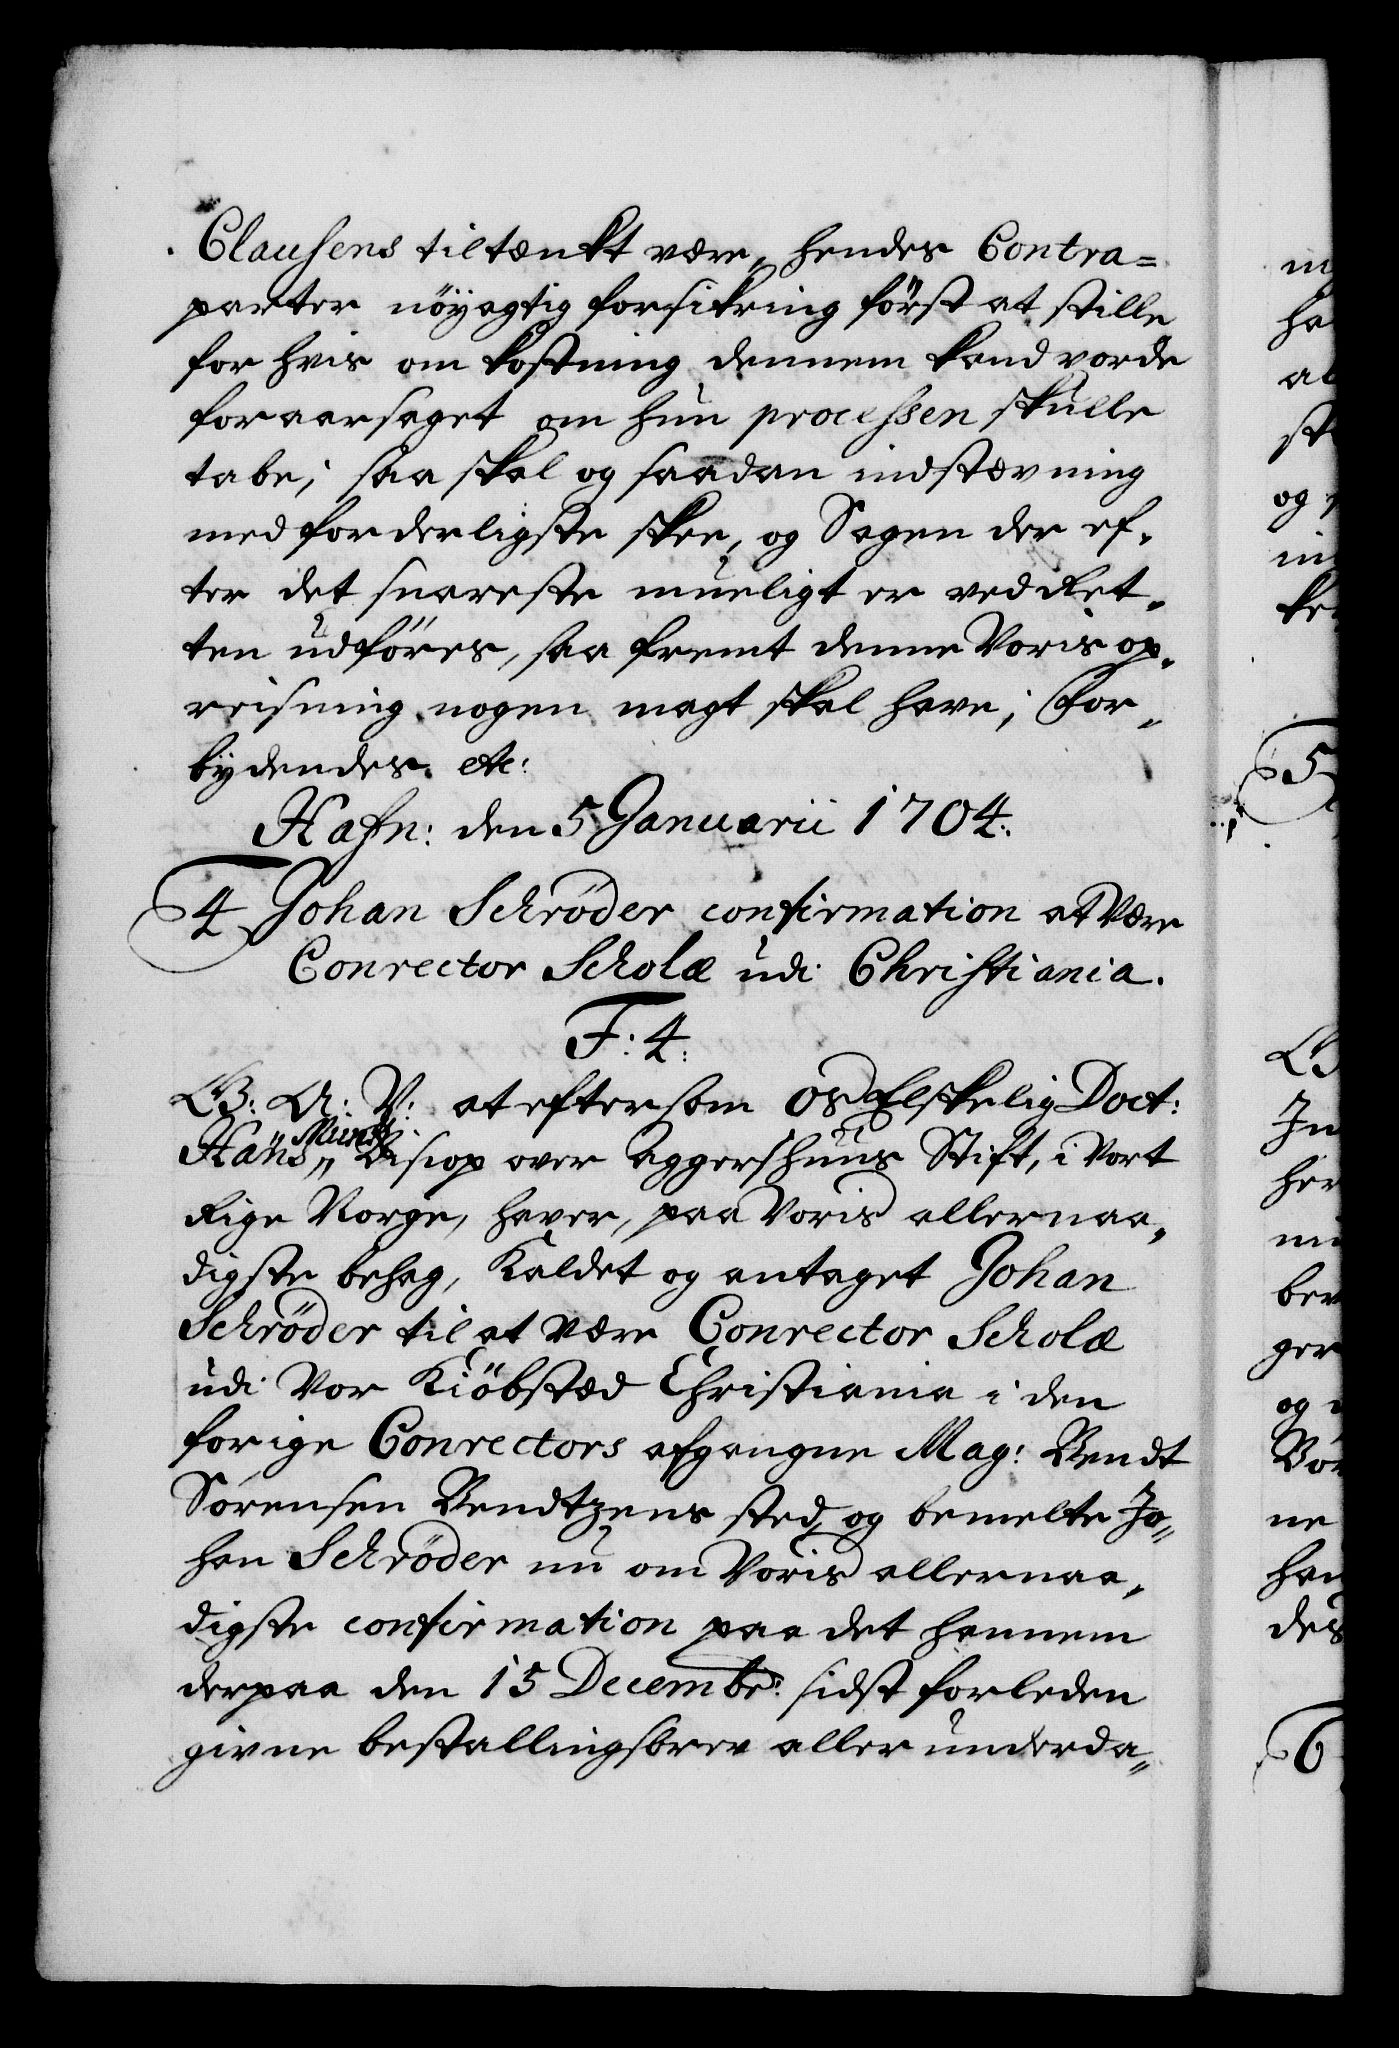 Clausens tiltænkt være, hendes Contra=
parter nöyagtig forsikring först at stille
for hvis omkostning dennem kand vorde
foraarsaget om hun processen skulle
tabe; saa skal og saadan indstævning
med forderligste skee, og Sagen der ef„
ter det snareste mueligt er ved Ret„
ten udföres, saa fremt denne Voris op„
reisning nogen magt skal have; For„
bydendes etc:
Hafn: den 5 Januarii 1704.
4 Johan Schrøder confirmation at Være
Conrector Scholæ udi Christiania.
F: 4.
G: A: V: at eftersom Os Elskelig Doct:
Munch
Hans „ Bisiop over Aggershuus Stift, i Vort
Rige Norge, haver, paa Voris allernaa„
digste behag, Kaldet og antaget Johan
Schrøder til at være Conrector Scholæ
udi Vor Kiöbstæd Christiania i den
forige Conrectors afgangne Mag: Bendt
Sørensen Bendtzens sted, og bemelte Jo„
han Schrøder nu om Voris allernaa„
digste confirmation paa det hannem
derpaa den 15 Decembr: sidst forleden
givne bestallingsbrev allerunderda„
5
6